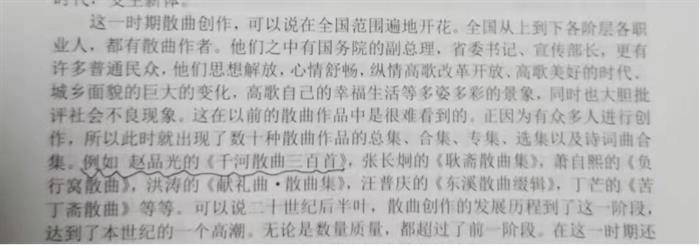 这一时期散曲创作，可以说在全国范围遍地开花。全国从上到下各阶层各职
业人，都有散曲作者。他们之中有国务院的副总理，省委书记、宣传部长，更有
许多普通民众，他们思想解放，心情舒畅，纵情高歌改革开放、高歌美好的时代、
城乡面貌的巨大的变化，高歌自己的幸福生活等多姿多彩的景象，同时也大胆批
评社会不良现象。这在以前的散曲作品中是很难看到的。正因为有众多人进行创
作，所以此时就出现了数十种散曲作品的总集、合集、专集、选集以及诗词曲合
集。例如 赵品光的《干河散曲三百首》，张长炯的《耿斋散曲集》，萧自熙的《负
行窝散曲》，洪涛的《献礼曲·散曲集》，汪普庆的《东溪散曲缀辑》，丁芒的《苦
丁斋散曲》等等。可以说二十世纪后半叶，散曲创作的发展历程到了这一阶段，
达到了本世纪的一个高潮。无论是数量质量，都超过了前一阶段。在这一时期还